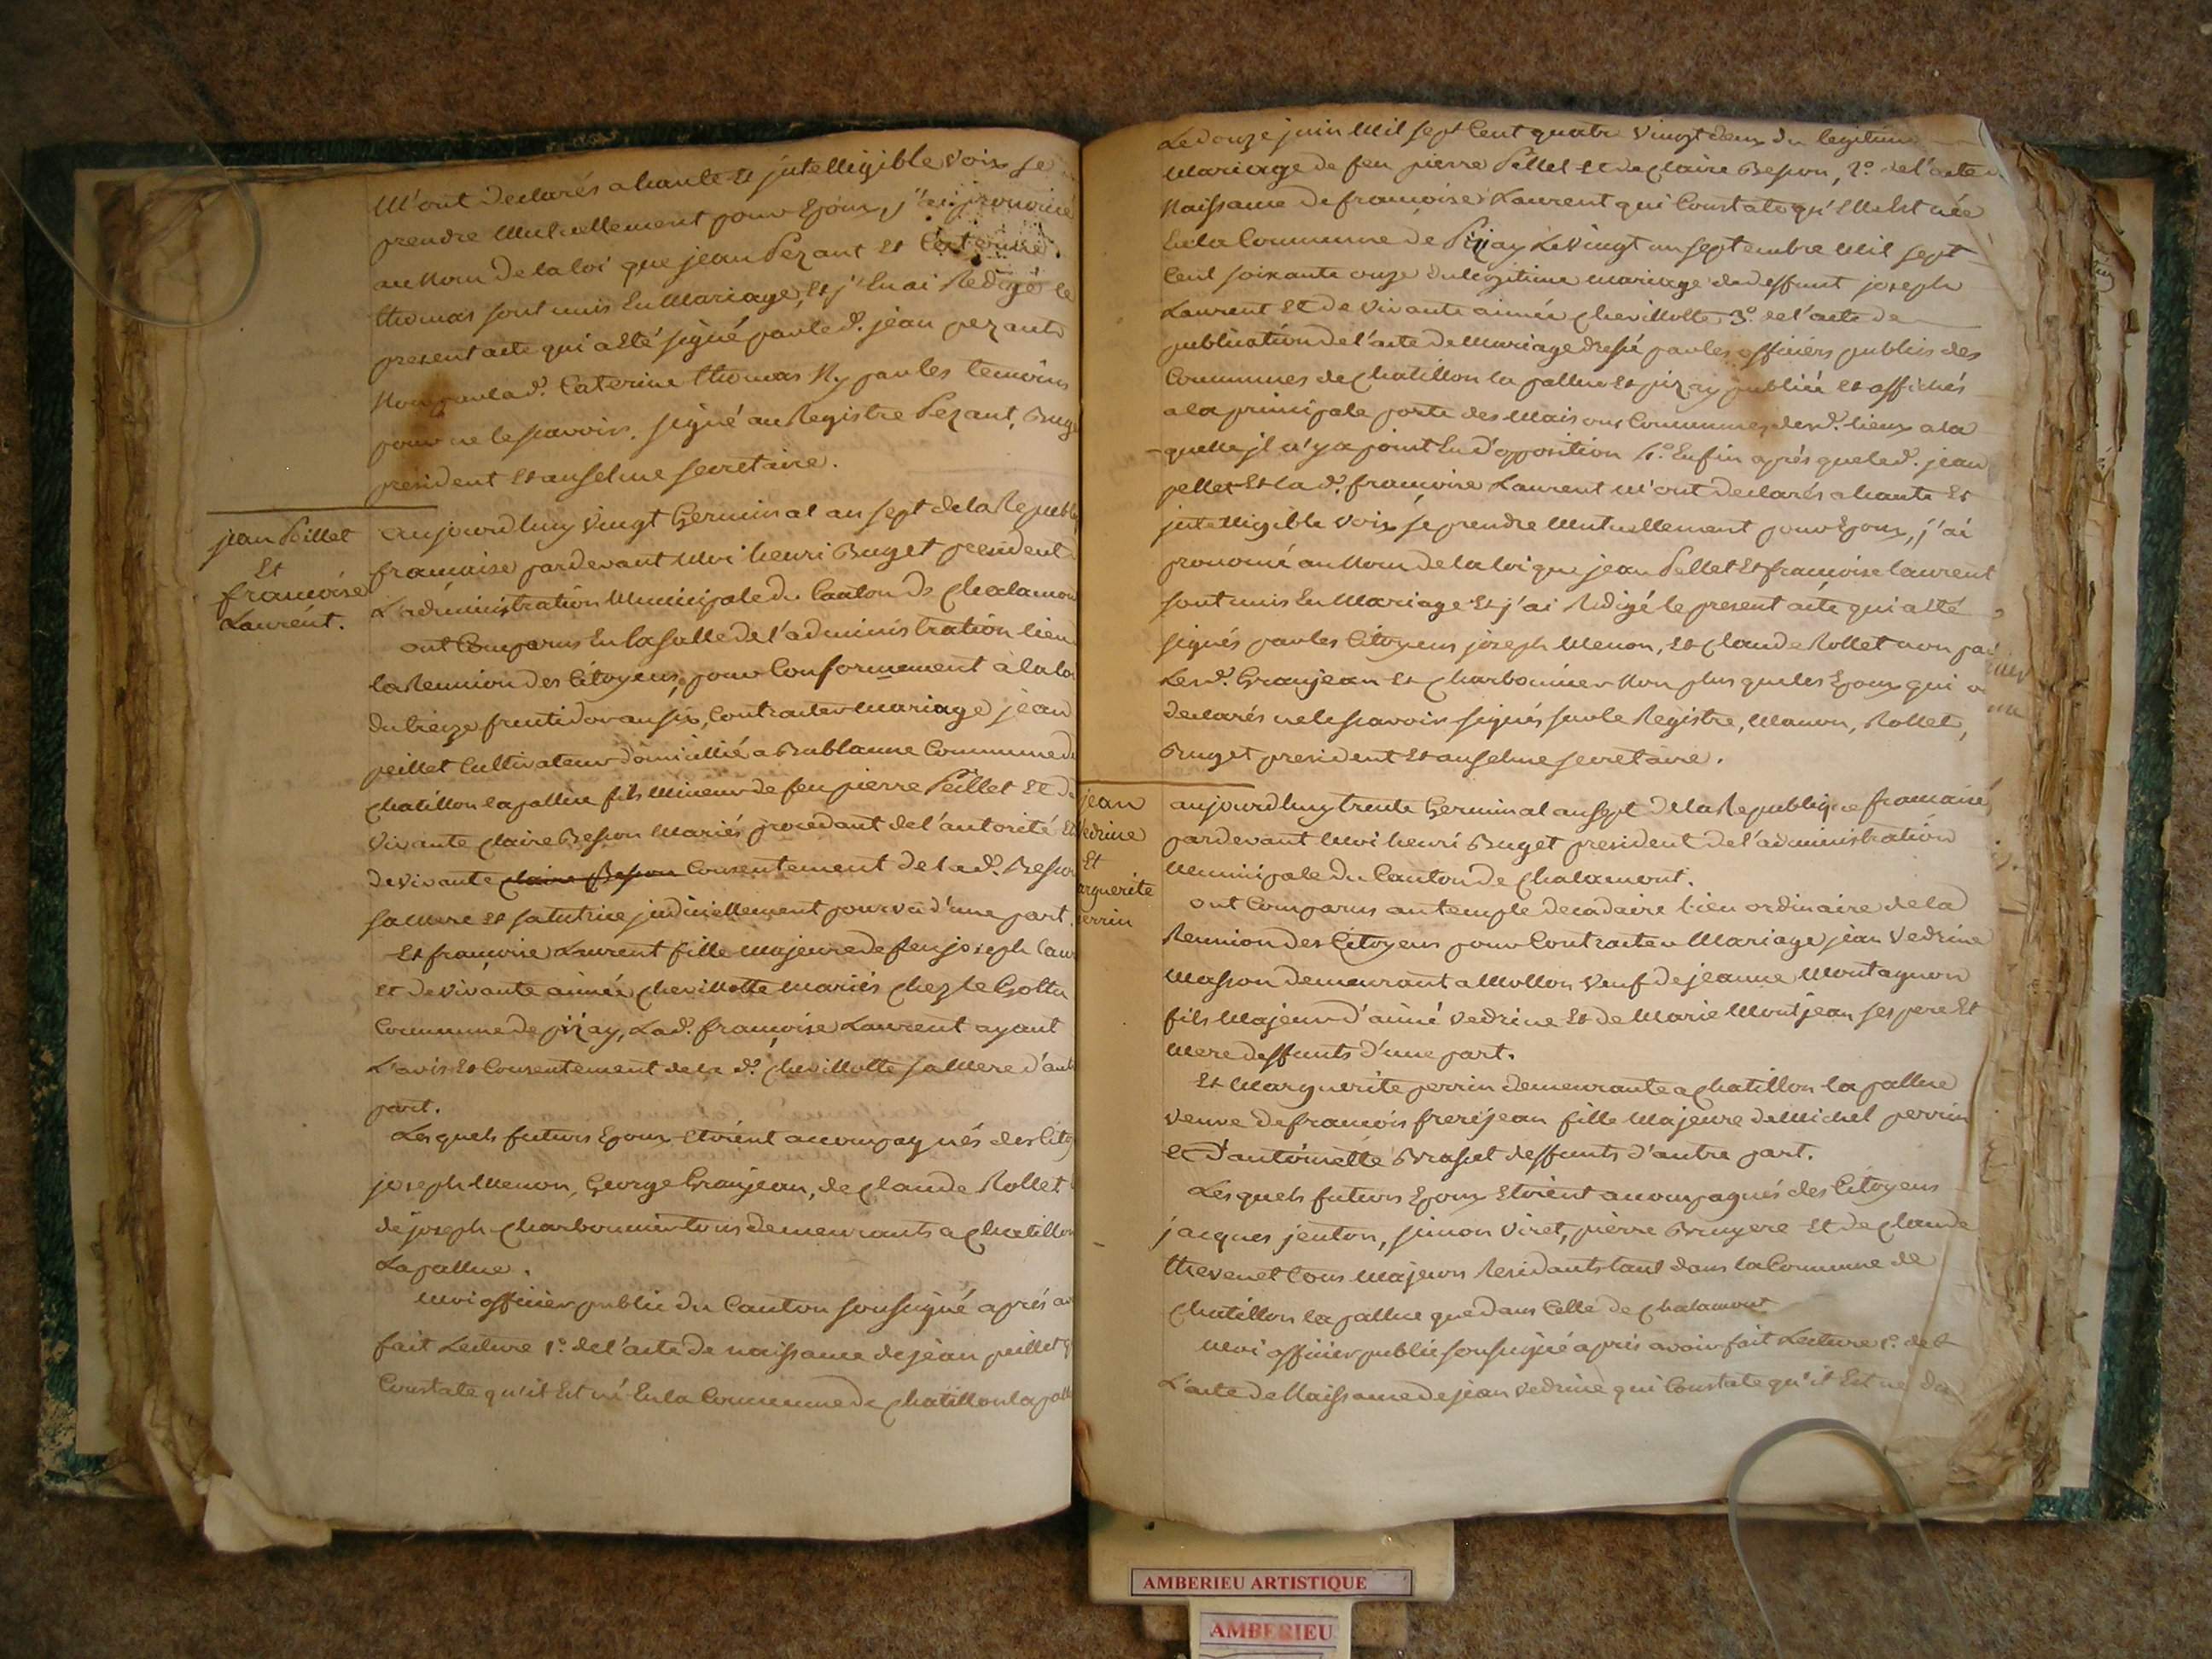 M'ont declarés a haute et jntelligible voix se
prendre Mutuellement pour Epoux, j'ai prononcé
au Nom de la loi que jean Pezant et Caterine
thomas sont unis En Mariage, Et j'En ai Redigé le
present acte qui a Eté signé par le d. jean pezant
Non par la d. Caterine thomas Ny par les temoins
pour ne le scavoir. signé au Registre Pezant, Buge
president Et anselme secretaire.
jean Peillet
Et
francoise
Laurént.
aujourdhuy vingt Germinal an sept de la Republi
francaise pardevant Moi henri Buget president
L'administration Municipale du Canton de Chalamon
ont Comparus En la salle de l'administration lieu
la Reunion des Citoyens, pour Conformement à la loi
du treize fructidor an six, Contracter Mariage jean
peillet Cultivateur domicillié a Bublanne Commune de
Chatillon la pallue fils Mineur de feu pierre Peillet Et de
vivante Claire Besson Mariés procedant de l'autorité Et
de vivante Claire Besson Consentement de la d. Besson
sa Mere Et sa tutrice judiciellement pourvu d'une part.
Et francoise Laurent fille Majeure de feu joseph Laur
Et de vivante aimée Chevillotte Mariés Chez le Gottu
Commune de pizay, La d. francoise Laurent ayant
L'avis Et Consentement de la d. Chevillotte sa Mere d'autr
part.
Lesquels futurs Epoux Etoient accompagnés des Citoy
joseph Menon, George Granjean, de Claude Rollet
de joseph Charbonnier tous demeurants a Chatillon
La pallue.
Moi officier public du Canton soussigné aprés av
fait Lecture 1.° de l'acte de naissance de jean peillet q
Constate qu'il Est né En la Commune de Chatillon la pall
Le douze juin Mil sept Cent quatre vingt deux du legitime
Mariage de feu pierre Pellet Et de Claire Besson, 2.° de l'acte de
Naissance de francoise Laurent qui Constate qu'Elle Est née
En la Commune de Pizay Le vingt un septembre Mil sept
Cent soixante onze du legitime Mariage de deffunt joseph
Laurent Et de vivante aimée Chevillotte 3.° de l'acte de
publication de l'acte de Mariage dressé par les officiers publics des
Communes de Chatillon la pallue Et pizay publiée Et affichés
a la principale porte des Maisons Communes desd. lieux a la
quelle jl n'y a point Eu d'opposition 4.° Enfin aprés que le d. jean
pellet Et la d. francoise Laurent M'ont declarés a haute Et
jntelligible voix se prendre Mutuellement pour Epoux, j'ai
prononcé au Nom de la loi que jean Pellet Et francoise laurent
sont unis En Mariage Et j'ai Redigé le present acte qui a Eté
signés par les Citoyens joseph Menon, Et Claude Rollet non par
Les d. Granjean Et Charbonnier Non plus que les Epoux qui o
declarés ne le scavoir signés sur le Registre, Manon, Rollet,
Buget president Et anselme secretaire.
jean
Vedrine
Et
arguerite
perrin
aujourdhuy trente Germinal an sept de la Republique francaise
pardevant Moi henri Buget president de l'administration
Municipale du Canton de Chalamont.
ont Comparus au temple decadaire lieu ordinaire de la
Reunion des Citoyens pour Contracter Mariage jean Vedrine
Masson demeurant a Mollon veuf de jeanne Montagnon
fils Majeur d'aimé vedrine Et de Marie Montjean ses pere Et
Mere deffunts d'une part.
Et Marguerite perrin demeurante a Chatillon la pallue
veuve de francois frerejean fille Majeure de Michel perrin
et d'antoinette deffunts d'autre part.
Lesquels futurs Epoux Etoient accompagnés des Citoyens
jacques jenton, simon viret, pierre Bruyere Et de Claude
thevenet tous Majeurs Residants tant dans la Commune de
Chatillon la pallue que dans Celle de Chalamont
Moi officier public soussigné aprés avoir fait Lecture 1.° de
L'acte de Naissance de jean vedrine qui Constate qu'il Est né du
AMBERIEU ARTISTIQUE
AMBERIEU